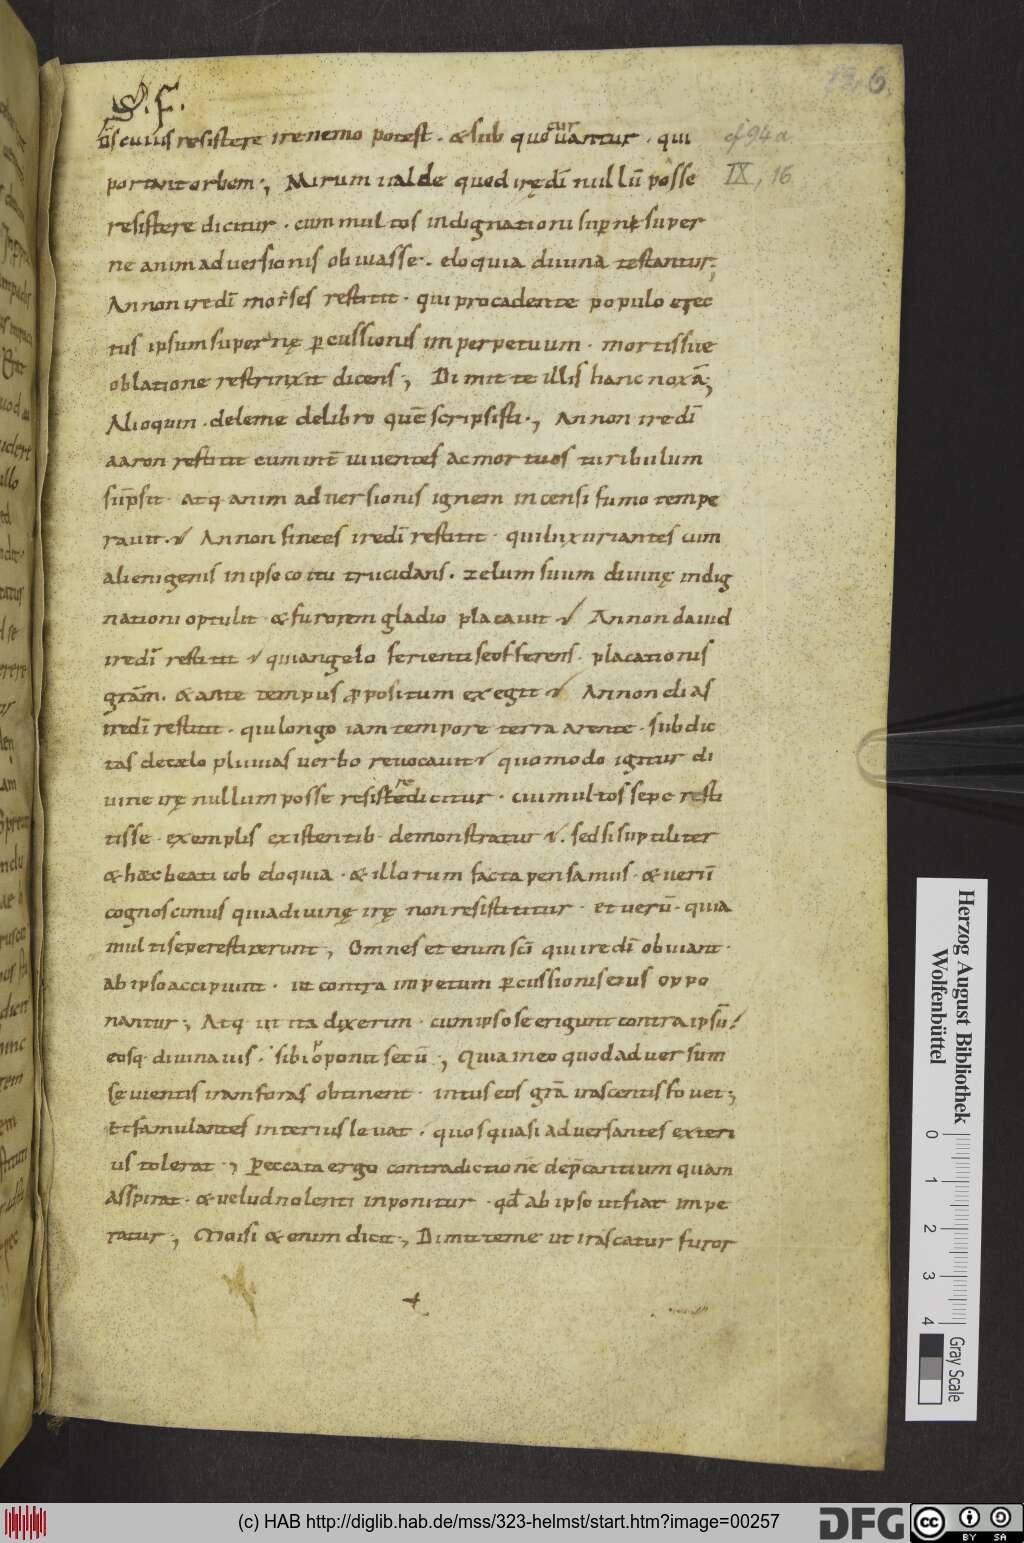 S. F.
d̅s cuius resistere ire nemo potest · & sub quo curuantur · qui
portant orbem ·, Mirum ualde quod irę dī nullū posse
resistere dicitur · cum multos indignationi sup̲nę super
ne animaduersionis obuiasse · eloquia diuina testantur;
An non ire dī moẏses restitit · qui procadente populo erec
tus ipsum supernę p̲cussionis imperpetuum · mortis suę
oblatione restrinxit dicens ·, Dimitte illis hanc noxā;
Alioquin · dele me de libro quē scripsisti ·, An non ire dī
aaron restitit cum int̄ uiuentes ac mortuos turibulum
sūpsit · atq· animaduersionis ignem incensi fumo tempe
rauit · An non finees ire dī restitit · qui luxuriantes cum
alienigenis in ipso coitu trucidans · zelum suum diuinę indig
nationi optulit · & furorem gladio placauit An non dauid
ire dī restitit qui angelo ferienti se offerens · placationis
grām · & ante tempus p̲positum exegit An non elias
ire dī restitit · qui longo iam tempore terra arente · sub dic
tas de cęlo pluuias uerbo reuocauit quomodo igitur di
uine irę nullum posse resistere dicitur · cui multos sepe resti
tisse · exemplis existentib· demonstratur · sed si suptiliter
& hæc beati iob eloquia · & illorum facta pensamus · & uerū
cognoscimus quia diuinę irę non resistitur · et uerū · quia
multi sepe restiterunt ·, Omnes etenim scī qui ire dī obuiant ·
ab ipso accipiunt · ut contra impetum p̲cussionis eius oppo
nantur ·, Atq· ut ita dixerim · cum ipso se erigunt contra ipsū
eosq· diuina uis · sibi oponit secū ·, Quia in eo quod aduersum
sęuientis iram foras obtinent · intus eos grā irascentis fouet ·,
Et famulantes interius leuat · quos quasi aduersantes exteri
us tolerat ·, Peccata ergo contradictione dep̄cantium quam
asspirat · & uelud nolenti inponitur · qd̄ ab ipso ut fiat impe
ratur ·, Moisi & enim dicit ·, Dimitte me ut irascatur furor
6.
cf 94a
IX, 16
Herzog August Bibliothek
Wolfenbüttel
0 1 2 3 4
Gray Scale
(c) HAB http://diglib.hab.de/mss/323-helmst/start.htm?image=00257
DFG
cc BY SA